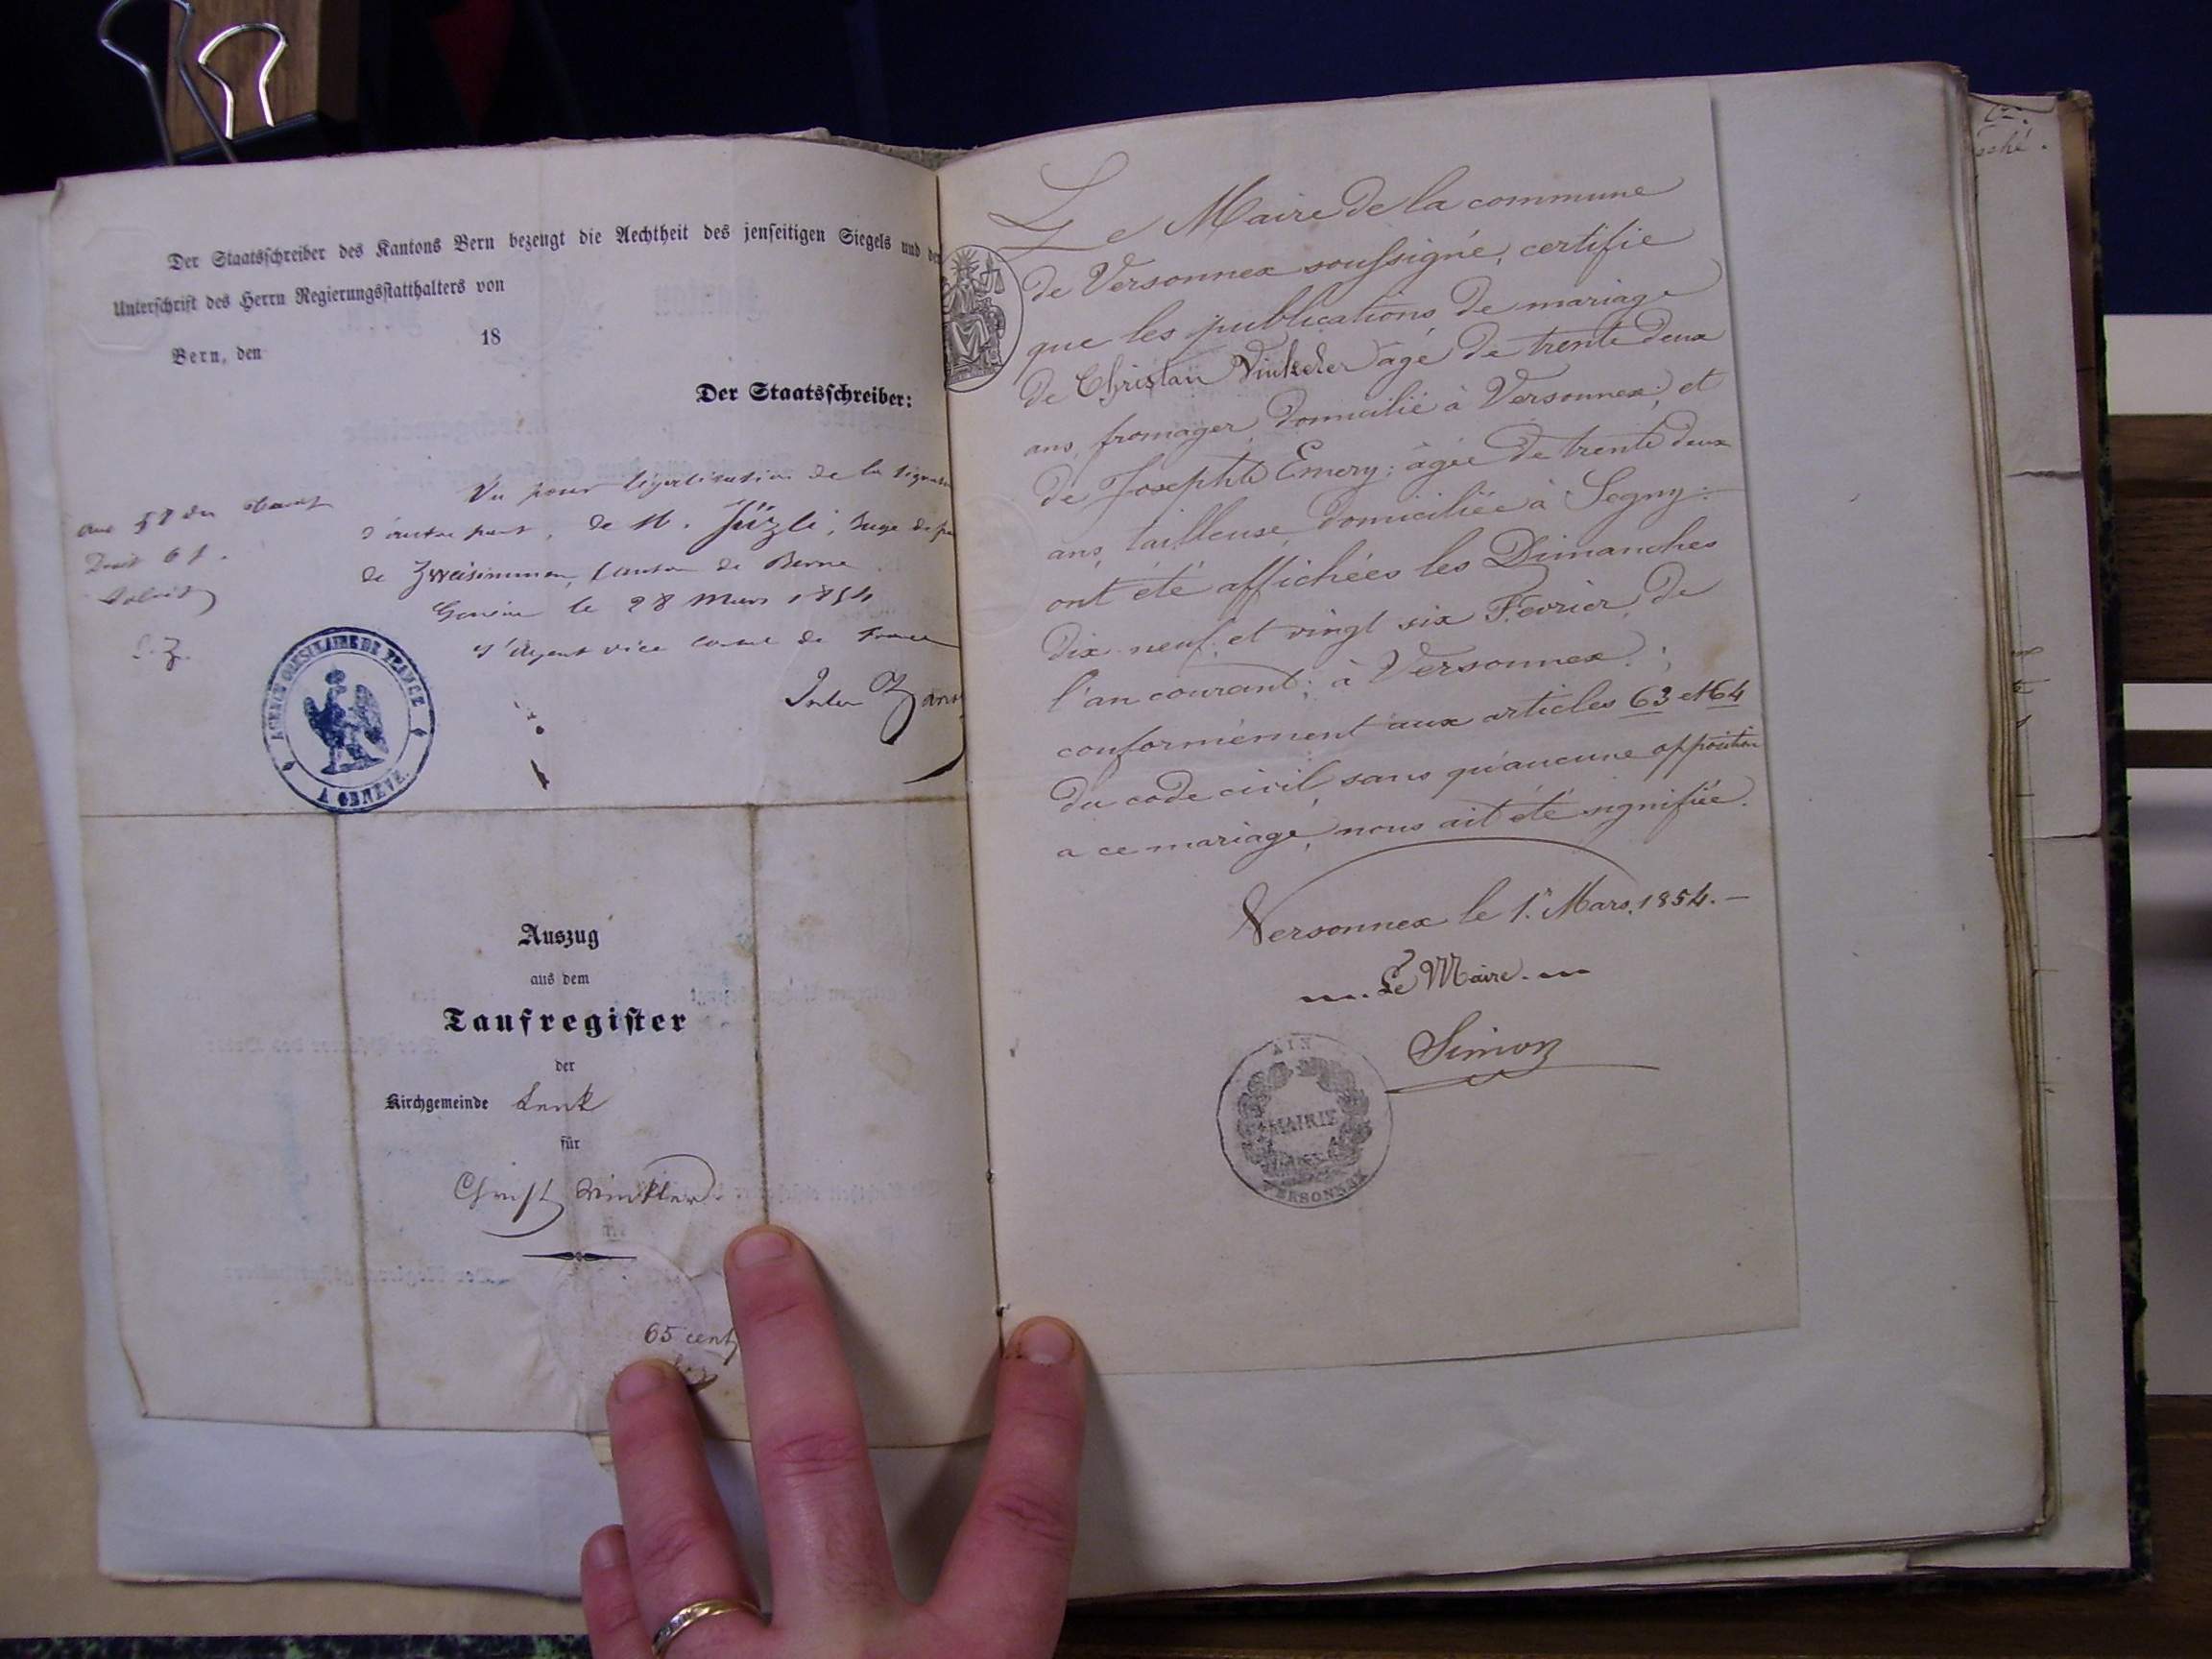 Der Staatsschreiber des Kantons Bern bezeugt die Aechtheit des jenseitigen Siegels und der
Unterschrift des Herrn Regierungsstatthalters von
Bern, den 18
Der Staatsschreiber:
Vu pour légalisation de la signature
d'autre part, de M. Juge de
de Zweisimmen, Canton de Berne
Genève le 28 Mars 1854
L'Agent vice consul de France
AGENCE CONSULAIRE DE FRANCE
A GENÈVE.
Auszug
aus dem
Taufregister
der
Kirchgemeinde Lenk
für
Christ Winkler
65 cent
Le Maire de la commune
de Versonnex soussigné, certifie
que les publications de mariage
de Christan Vinkeler agé de trente deux
ans, fromager, domicilié à Versonnex; et
de Josephte Emery; âgée de trente deux
ans, tailleuse, domiciliée à Segny:
ont été affichées les Dimanches
dix-neuf, et vingt six Fevrier, de
l'an courant; à Versonnex.;
conformément aux articles 63 et 64
du code civil, sans qu'aucune opposition
a ce mariage, nous ait été signifiée.
Versonnex le 1.r Mars, 1854.—
Le Maire.
Simon
AIN
MAIRIE
VERSONNEX